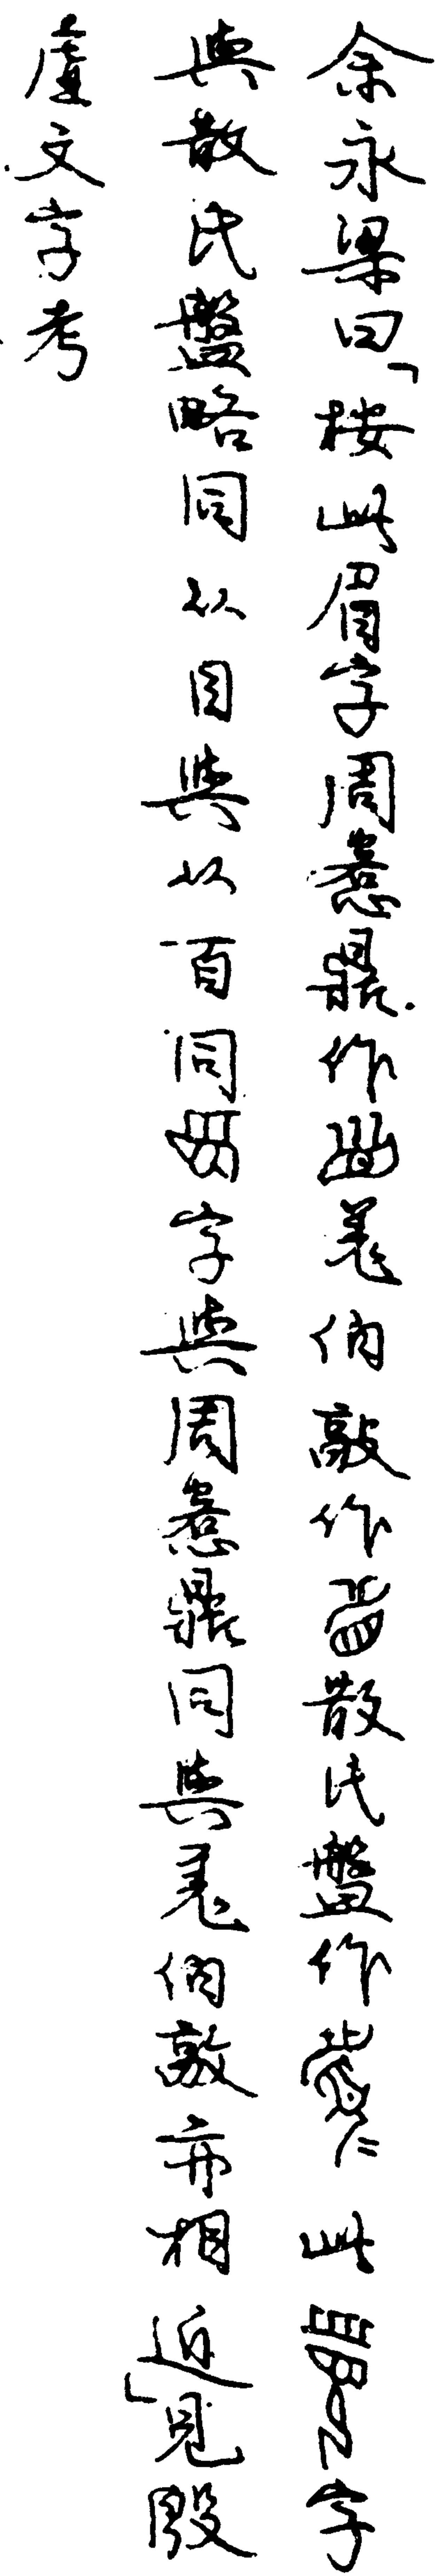 余永梁曰「按此眉字周窸鼎作羌伯敦作散氏盤作此字
與散氏盤略同从目與从百同字與周窸鼎同與羌伯敦亦相近」見殷
虛文字考